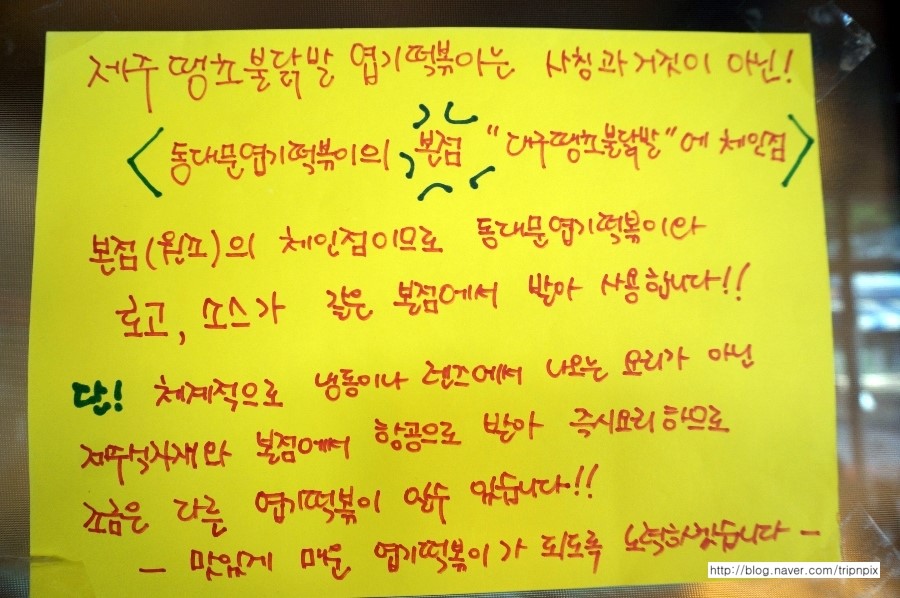 제주땡초불닭발 엽기떡볶이는 사칭과 거짓이 아닌!
<동대문엽기떡볶이의 본점 "대구땡초불닭발"에 체인점>
본점(원프)의 체인점이므로 동대문엽기떡볶이와
로고, 쏘스가 같은 본점에서 받아 사용합니다!!
단! 체계적으로 냉동이나 렌즈에서 나오는 요리가 아닌
제주식자재와 본점에서 항공으로 받아 즉시요리 하므로
조금은 다른 엽기떡볶이 일수 있습니다!!
- 맛있게 매운 엽기떡볶이가 되도록 노력하겠습니다 -
http://blog.naver.com/tripnpix